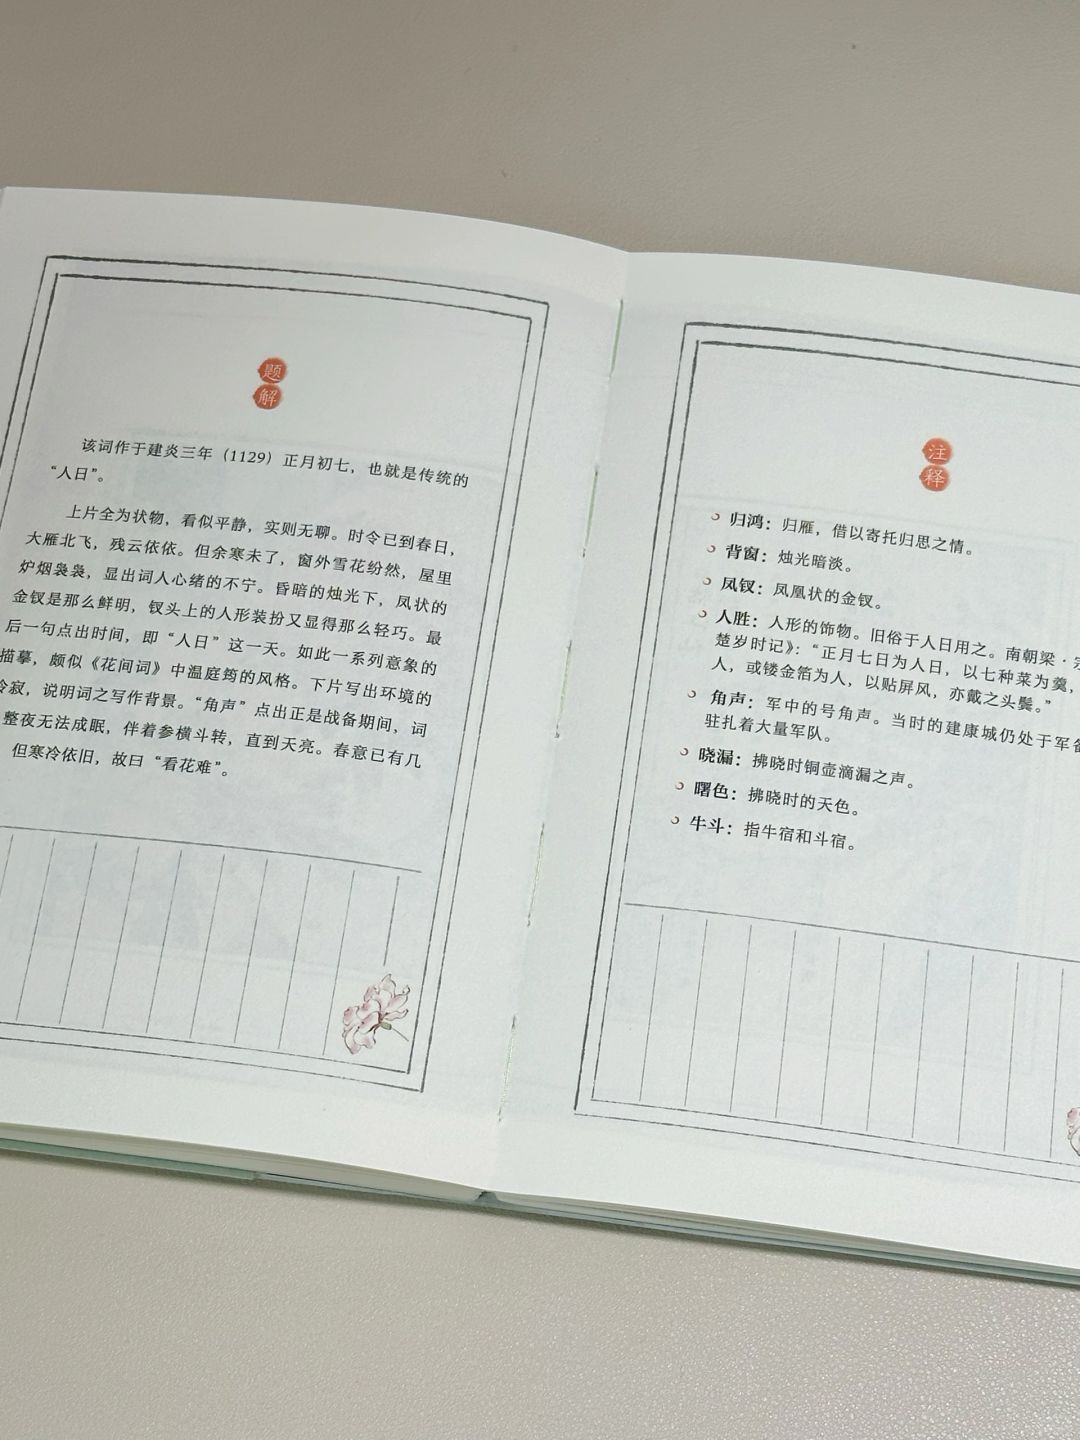 题
解
该词作于建炎三年（1129）正月初七，也就是传统的
“人日”。
上片全为状物，看似平静，实则无聊。时令已到春日，
大雁北飞，残云依依。但余寒未了，窗外雪花纷然，屋里
炉烟袅袅，显出词人心绪的不宁。昏暗的烛光下，凤状的
金钗是那么鲜明，钗头上的人形装扮又显得那么轻巧。最
后一句点出时间，即“人日”这一天。如此一系列意象的
描摹，颇似《花间词》中温庭筠的风格。下片写出环境的
冷寂，说明词之写作背景。“角声”点出正是战备期间，词
整夜无法成眠，伴着参横斗转，直到天亮。春意已有几
但寒冷依旧，故曰“看花难”。
注
释
归鸿：归雁，借以寄托归思之情。
背窗：烛光暗淡。
凤钗：凤凰状的金钗。
人胜：人形的饰物。旧俗于人日用之。南朝梁·宗
楚岁时记》：“正月七日为人日，以七种菜为羹，
人，或镂金箔为人，以贴屏风，亦戴之头鬓。”
角声：军中的号角声。当时的建康城仍处于军备
驻扎着大量军队。
晓漏：拂晓时铜壶滴漏之声。
曙色：拂晓时的天色。
牛斗：指牛宿和斗宿。